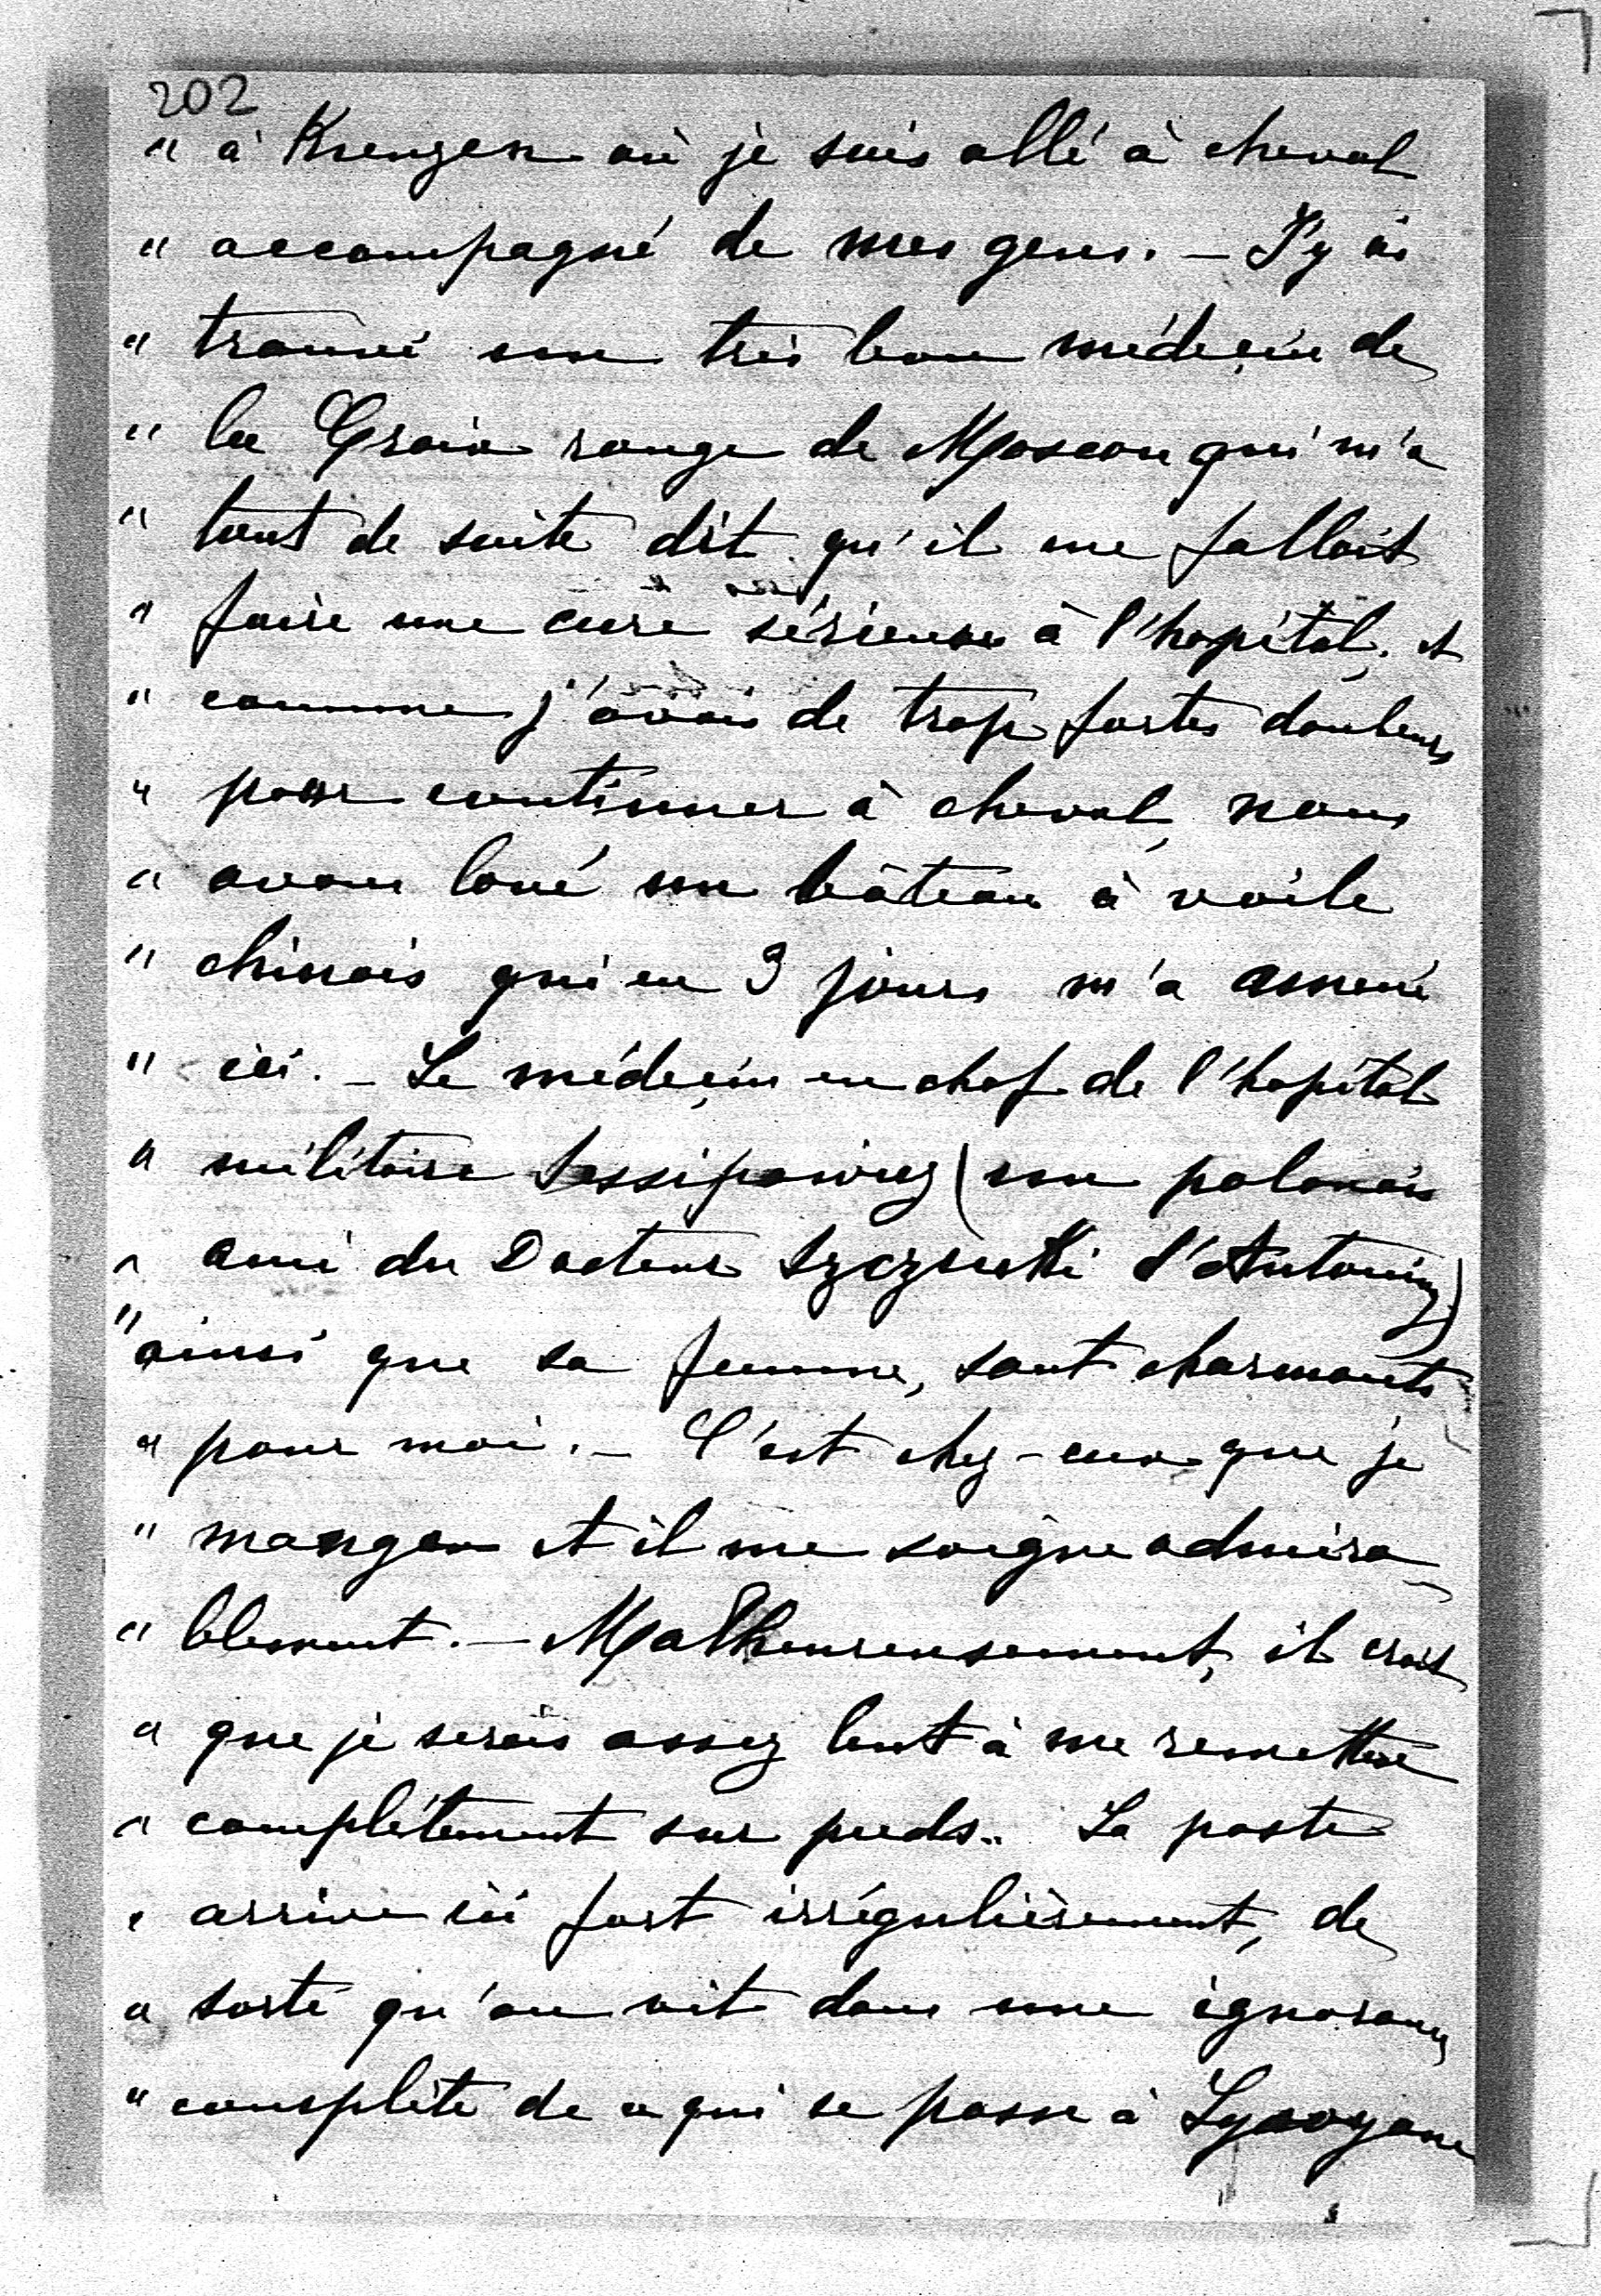 202
" à Kuenzen où je suis allé à cheval
" accompagné de mes gens. – J'y ai
" trouvé un très bon médecin de
" la Croix rouge de Moscou qui m'a
" tout de suite dit qu'il me fallait
" faire une cure sérieuse à l'hopital, et
" comme j'avais de trop fortes douleurs
" pour continuer à cheval, nous
" avons loué un bâteau à voile
" chinois qui en 3 jours m'a amené
" ici. – Le médecin en chef de l'hopital
" militaire (un polonais
" ami du Docteur d'Antoniny)
" ainsi que sa femme, sont charmants
" pour moi. – C'est chez-eux que je
" mange et il me soigne admira-
" blement. – Malheureusement, il croit
" que je serais assez lent à me remettre
" complètement sur pieds.. La poste
" arrive ici fort irrégulièrement, de
" sorte qu'on vit dans une ignorance
" complète de ce qui se passe à